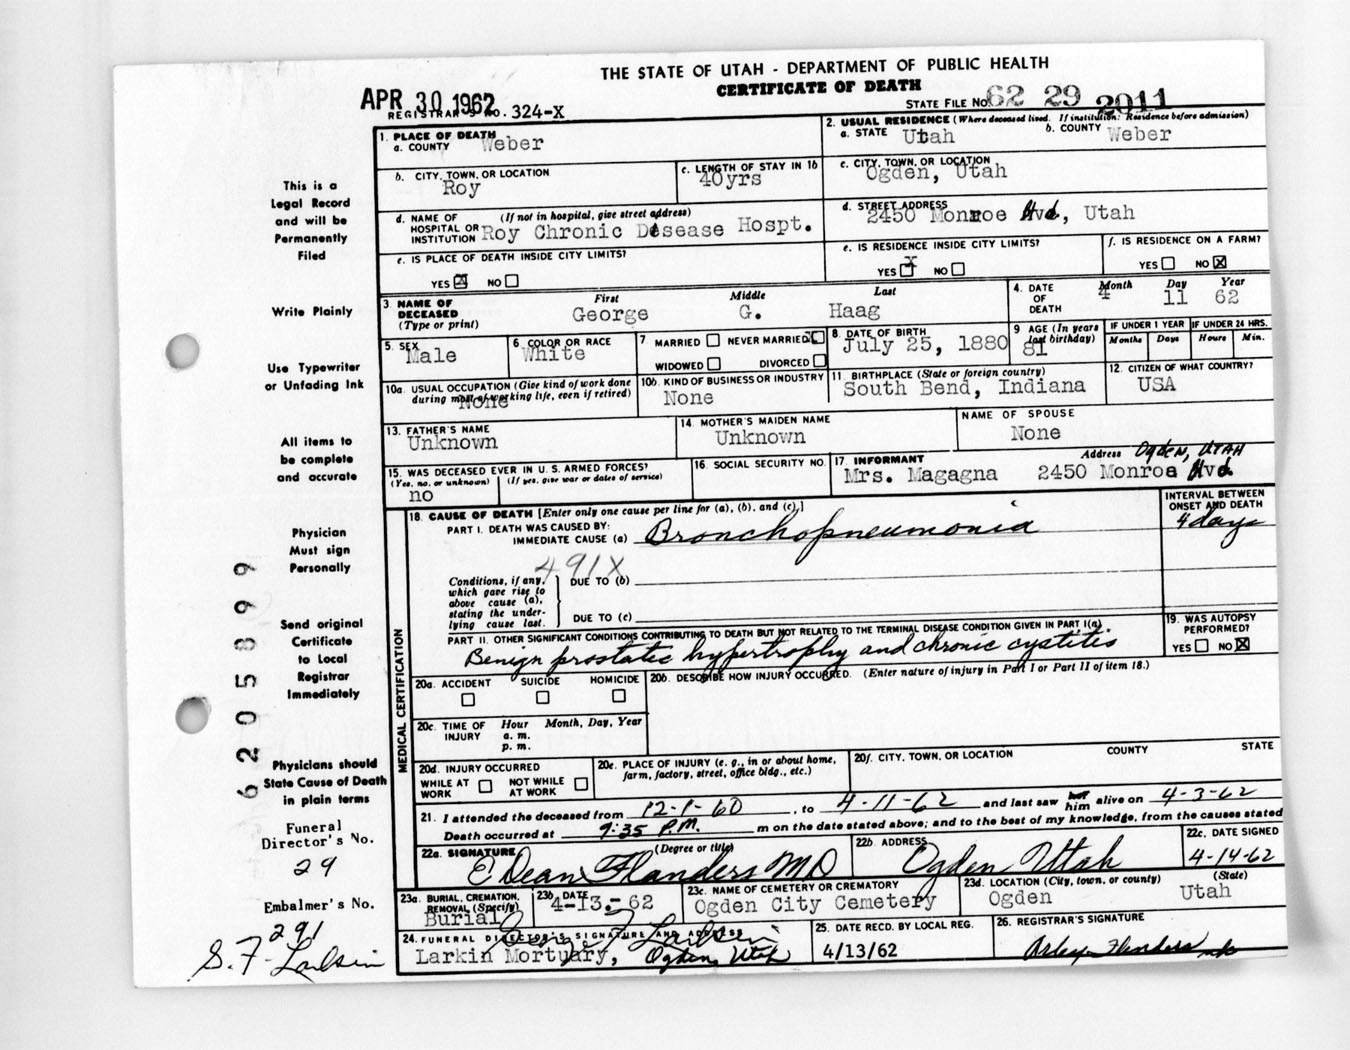 THE STATE OF UTAH - DEPARTMENT OF PUBLIC HEALTH
CERTIFICATE OF DEATH
APR 30 1962
REGISTRAR'S NO. 324-X
STATE FILE NO. 62 29 2011
1. PLACE OF DEATH
a. COUNTY Weber
2. USUAL RESIDENCE (Where deceased lived. If institution: Residence before admission)
a. STATE Utah
b. COUNTY Weber
b. CITY, TOWN, OR LOCATION
Roy
c. LENGTH OF STAY IN 1b
40yrs
c. CITY, TOWN, OR LOCATION
Ogden, Utah
d. NAME OF HOSPITAL OR INSTITUTION (If not in hospital, give street address)
Roy Chronic Disease Hospt.
d. STREET ADDRESS
2450 Monroe Blvd, Utah
e. IS PLACE OF DEATH INSIDE CITY LIMITS?
YES X NO
e. IS RESIDENCE INSIDE CITY LIMITS?
YES X NO
f. IS RESIDENCE ON A FARM?
YES NO X
3. NAME OF DECEASED (Type or print)
First Middle Last
George G. Haag
4. DATE OF DEATH
Month Day Year
4 11 62
5. SEX
Male
6. COLOR OR RACE
White
7 MARRIED NEVER MARRIED X
WIDOWED DIVORCED
8. DATE OF BIRTH
July 25, 1880
9 AGE (In years last birthday)
81
IF UNDER 1 YEAR
Months Days
IF UNDER 24 HRS.
Hours Min.
10a. USUAL OCCUPATION (Give kind of work done during most of working life, even if retired)
None
10b. KIND OF BUSINESS OR INDUSTRY
None
11. BIRTHPLACE (State or foreign country)
South Bend, Indiana
12. CITIZEN OF WHAT COUNTRY?
USA
13. FATHER'S NAME
Unknown
14. MOTHER'S MAIDEN NAME
Unknown
NAME OF SPOUSE
None
15. WAS DECEASED EVER IN U.S. ARMED FORCES?
(Yes, no, or unknown) (If yes, give war or dates of service)
no
16. SOCIAL SECURITY NO.
17. INFORMANT Address Ogden, Utah
Mrs. Magagna 2450 Monroe Blvd.
18. CAUSE OF DEATH [Enter only one cause per line for (a), (b), and (c).]
INTERVAL BETWEEN ONSET AND DEATH
PART I. DEATH WAS CAUSED BY:
IMMEDIATE CAUSE (a) Bronchopneumonia
4 days
491X
Conditions, if any, which gave rise to above cause (a), stating the underlying cause last.
DUE TO (b)
DUE TO (c)
PART II. OTHER SIGNIFICANT CONDITIONS CONTRIBUTING TO DEATH BUT NOT RELATED TO THE TERMINAL DISEASE CONDITION GIVEN IN PART I(a).
Benign prostatic hypertrophy and chronic cystitis
19. WAS AUTOPSY PERFORMED?
YES NO X
MEDICAL CERTIFICATION
20a. ACCIDENT SUICIDE HOMICIDE
20b. DESCRIBE HOW INJURY OCCURRED. (Enter nature of injury in Part I or Part II of item 18.)
20c. TIME OF INJURY Hour Month, Day, Year
a. m.
p. m.
20d. INJURY OCCURRED
WHILE AT WORK NOT WHILE AT WORK
20e. PLACE OF INJURY (e. g., in or about home, farm, factory, street, office bldg., etc.)
20f. CITY, TOWN, OR LOCATION COUNTY STATE
21. I attended the deceased from 12-1-60, to 4-11-62 and last saw her him alive on 4-3-62
Death occurred at 9:35 P.M. m on the date stated above; and to the best of my knowledge, from the causes stated
22a. SIGNATURE (Degree or title)
E Dean Flanders MD
22b. ADDRESS
Ogden Utah
22c. DATE SIGNED
4-14-62
23a. BURIAL, CREMATION, REMOVAL (Specify)
Burial
23b. DATE
4-13-62
23c. NAME OF CEMETERY OR CREMATORY
Ogden City Cemetery
23d. LOCATION (City, town, or county) (State)
Ogden Utah
24. FUNERAL DIRECTOR'S SIGNATURE AND ADDRESS
George F Larkin
Larkin Mortuary, Ogden, Utah
25. DATE RECD. BY LOCAL REG.
4/13/62
26. REGISTRAR'S SIGNATURE
This is a
Legal Record
and will be
Permanently
Filed
Write Plainly
Use Typewriter
or Unfading Ink
All items to
be complete
and accurate
Physician
Must sign
Personally
Send original
Certificate
to Local
Registrar
Immediately
Physicians should
State Cause of Death
in plain terms
Funeral
Director's No.
29
Embalmer's No.
291
S. F. Larkin
6205899